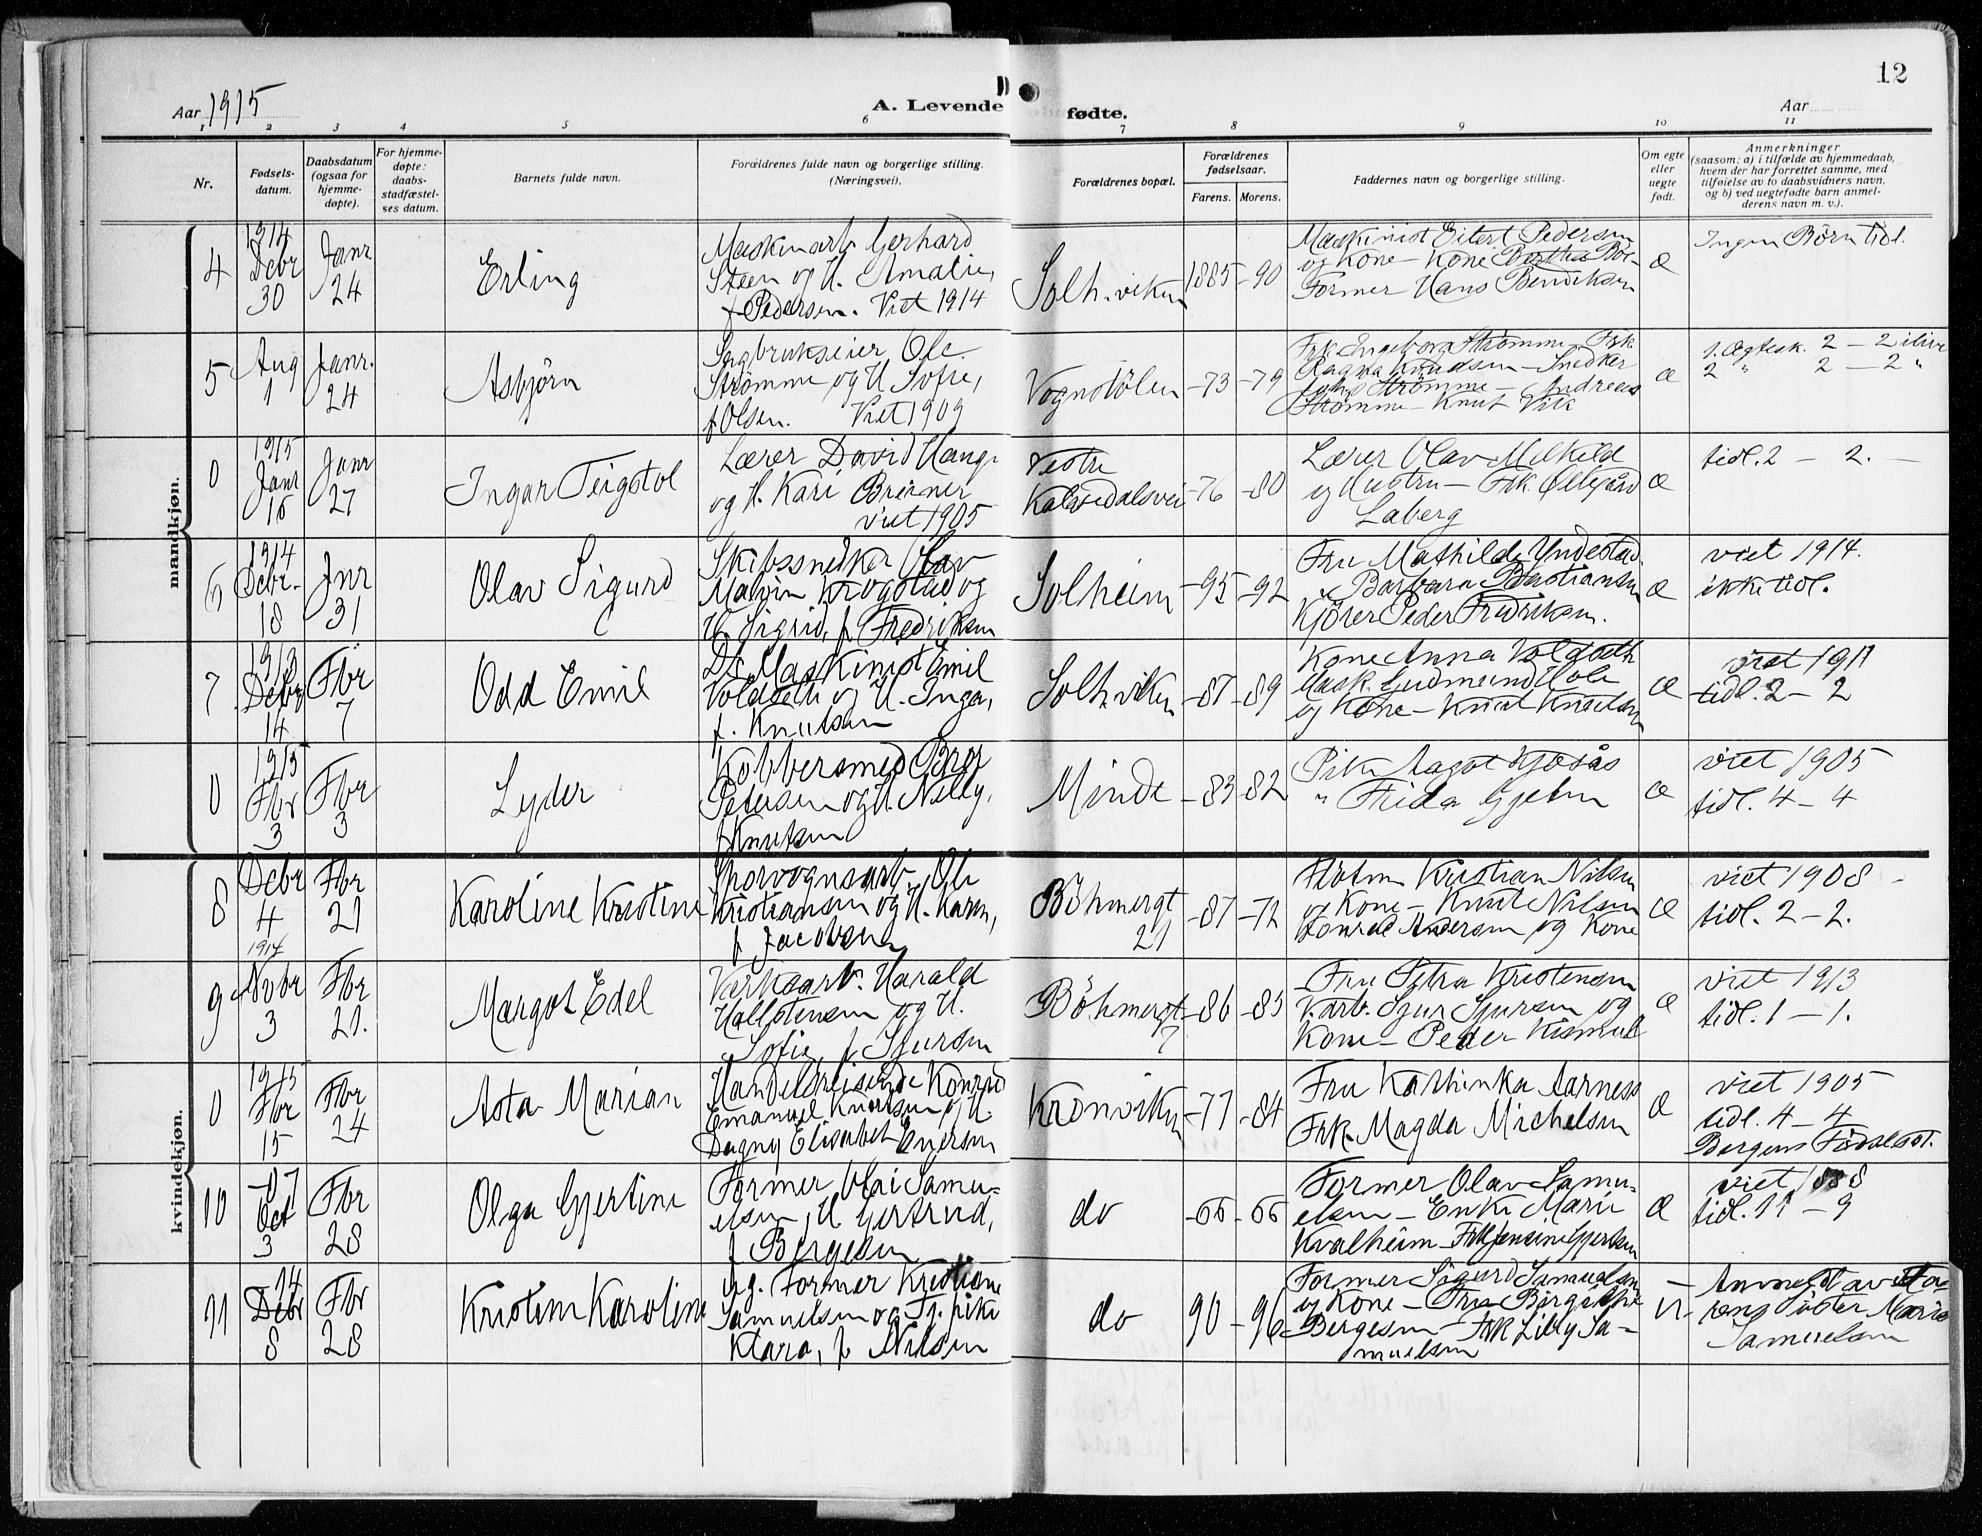 12
Aar 1915
A. Levende fødte.
Aar
1 2 3 4 5 6 7 8 9 10 11
Nr.
Fødsels-
datum.
Daabsdatum
(ogsaa for
hjemme-
døpte).
For hjemme-
døpte:
daabs-
stadfæstel-
ses datum.
Barnets fulde navn.
Forældrenes fulde navn og borgerlige stilling.
(Næringsvei).
Forældrenes bopæl.
Forældrenes
fødselsaar.
Farens. Morens.
Faddernes navn og borgerlige stilling.
Om egte
eller
uegte
født.
Anmerkninger
(saasom: a) i tilfælde av hjemmedaab,
hvem der har forrettet samme, med
tilføielse av to daabsvidners navn,
og b) ved uegtefødte barn anmel-
derens navn m. v.).
mandkjøn.
4
1914
Debr
30
Janr
24
Erling
Maskinarb Gerhard
Steen og H. Amalie,
f Pedersen. Viet 1914
Solh.viken
1885 -90
Maskinist Eilert Pedersen
og Kone - Kone Berthe Bö-
Former Hans Bendiksen
æ
Ingen Børn tidl.
5
Aug
1
Janr.
24
Asbjørn
Sagbrukseier Ole
Strømme og H Sofie,
f Olsen. Viet 1909
Vognstölen
-73 -79
Frk Ingeborg Strømme - Frk
Ragna Knudsen - Snedker
Johs Strømme - Andreas
Strømme - Knut Vik
æ
1. Ægtesk. 2 - 2 ilive
2 " 2 - 2 "
0
1915
Janr
16
Janr
27
Ingar Teigstol
Lærer David Hauge
og H. Kari Breiner
viet 1905
Vestre
Kalvedalsvei
-76 -80
Lærer Olav Melkild
og Hustru - Frk. Øllegård
Laberg
æ
tidl. 2 - 2. -
6
1914
Debr.
18
Jnr
31
Olav Sigurd
Skibssnedker Olav
Malvin Krogstad og
H. Sigrid, f Fredriksen
Solheim
-95 -92
Fru Mathilde Yndestad.
" Barbara Bastiansen
Kjører Peder Fredriksen.
æ
viet 1914.
ikke tidl.
7
1913
Debr
14
Fbr
7
Odd Emil
Ds. Maskinist Emil
Voldseth og H. Inga,
f. Knutsen
Solh.viken
-87 -89
Kone Anna Voldseth
Mask. Gudmund Hole
og Kone - Knut Knutsen
æ
viet 1911
tidl. 2 - 2
0
1915
Fbr
3
Fbr
3
Lyder
Kobbersmed Bror
Petersen og H Nelly,
f Knutsen
Minde
-83 -82
Pike Aagot Kjosås
" Frida Gjelen
æ
viet 1905
tidl. 4 - 4
kvindekjøn.
8
Debr
4
1914
Fbr
21
Karoline Kristine
Sporvognsarb Ole
Kristiansen og H. Karen,
f Jacobsen
Böhmergt
21
-87 -72
Fløtm Kristian Nilsen
og Kone - Knut Nilsen
Konrad Andersen og Kone
æ
viet 1908 -
tidl. 2 - 2.
9
Nvbr
3
Fbr
21.
Margot Edel
Verksarb. Harald
Hallstensen og H.
Sofie, f Sjursen
Böhmergt
7
-86 -83
Fru Petra Kristensen
V.arb. Sjur Sjursen og
Kone - Peder Kismul
æ
viet 1913
tidl. 1 - 1.
0
1915
Fbr
15
Fbr
24
Asta Marian
Handelsreisende Konrad
Emanuel Knudsen og H.
Dagny Elisabet Enersen
Kronviken
-77 -84
Fru Kathinka Aarness
Frk. Magda Michelsen
æ
viet 1905
tidl. 4 - 4
Bergens Fødselsst.
10
-07
Oct
3
Fbr
28
Olga Gjertine
Former Olai Samu-
elsen, H Gertrud,
f Bergesen
do
-66 -66
Former Olav Samu-
elsen - Enke Marie
Kvalheim - Frk Jensine Gjertsen
æ
viet 1888
tidl. 11 - 9
11
14
Debr
8
Fbr
28
Kristine Karoline
Ug. Former Kristiane
Samuelsen og Tj. pike
Klara, f Nilsen
do
90 -96
Former Sigurd Samuelsen
og Kone - Fru Birgithe
Bergesen - Frk Lilly Sa-
muelsen
u
- Anmeldt av Fa-
rens söster Marie
Samuelsen